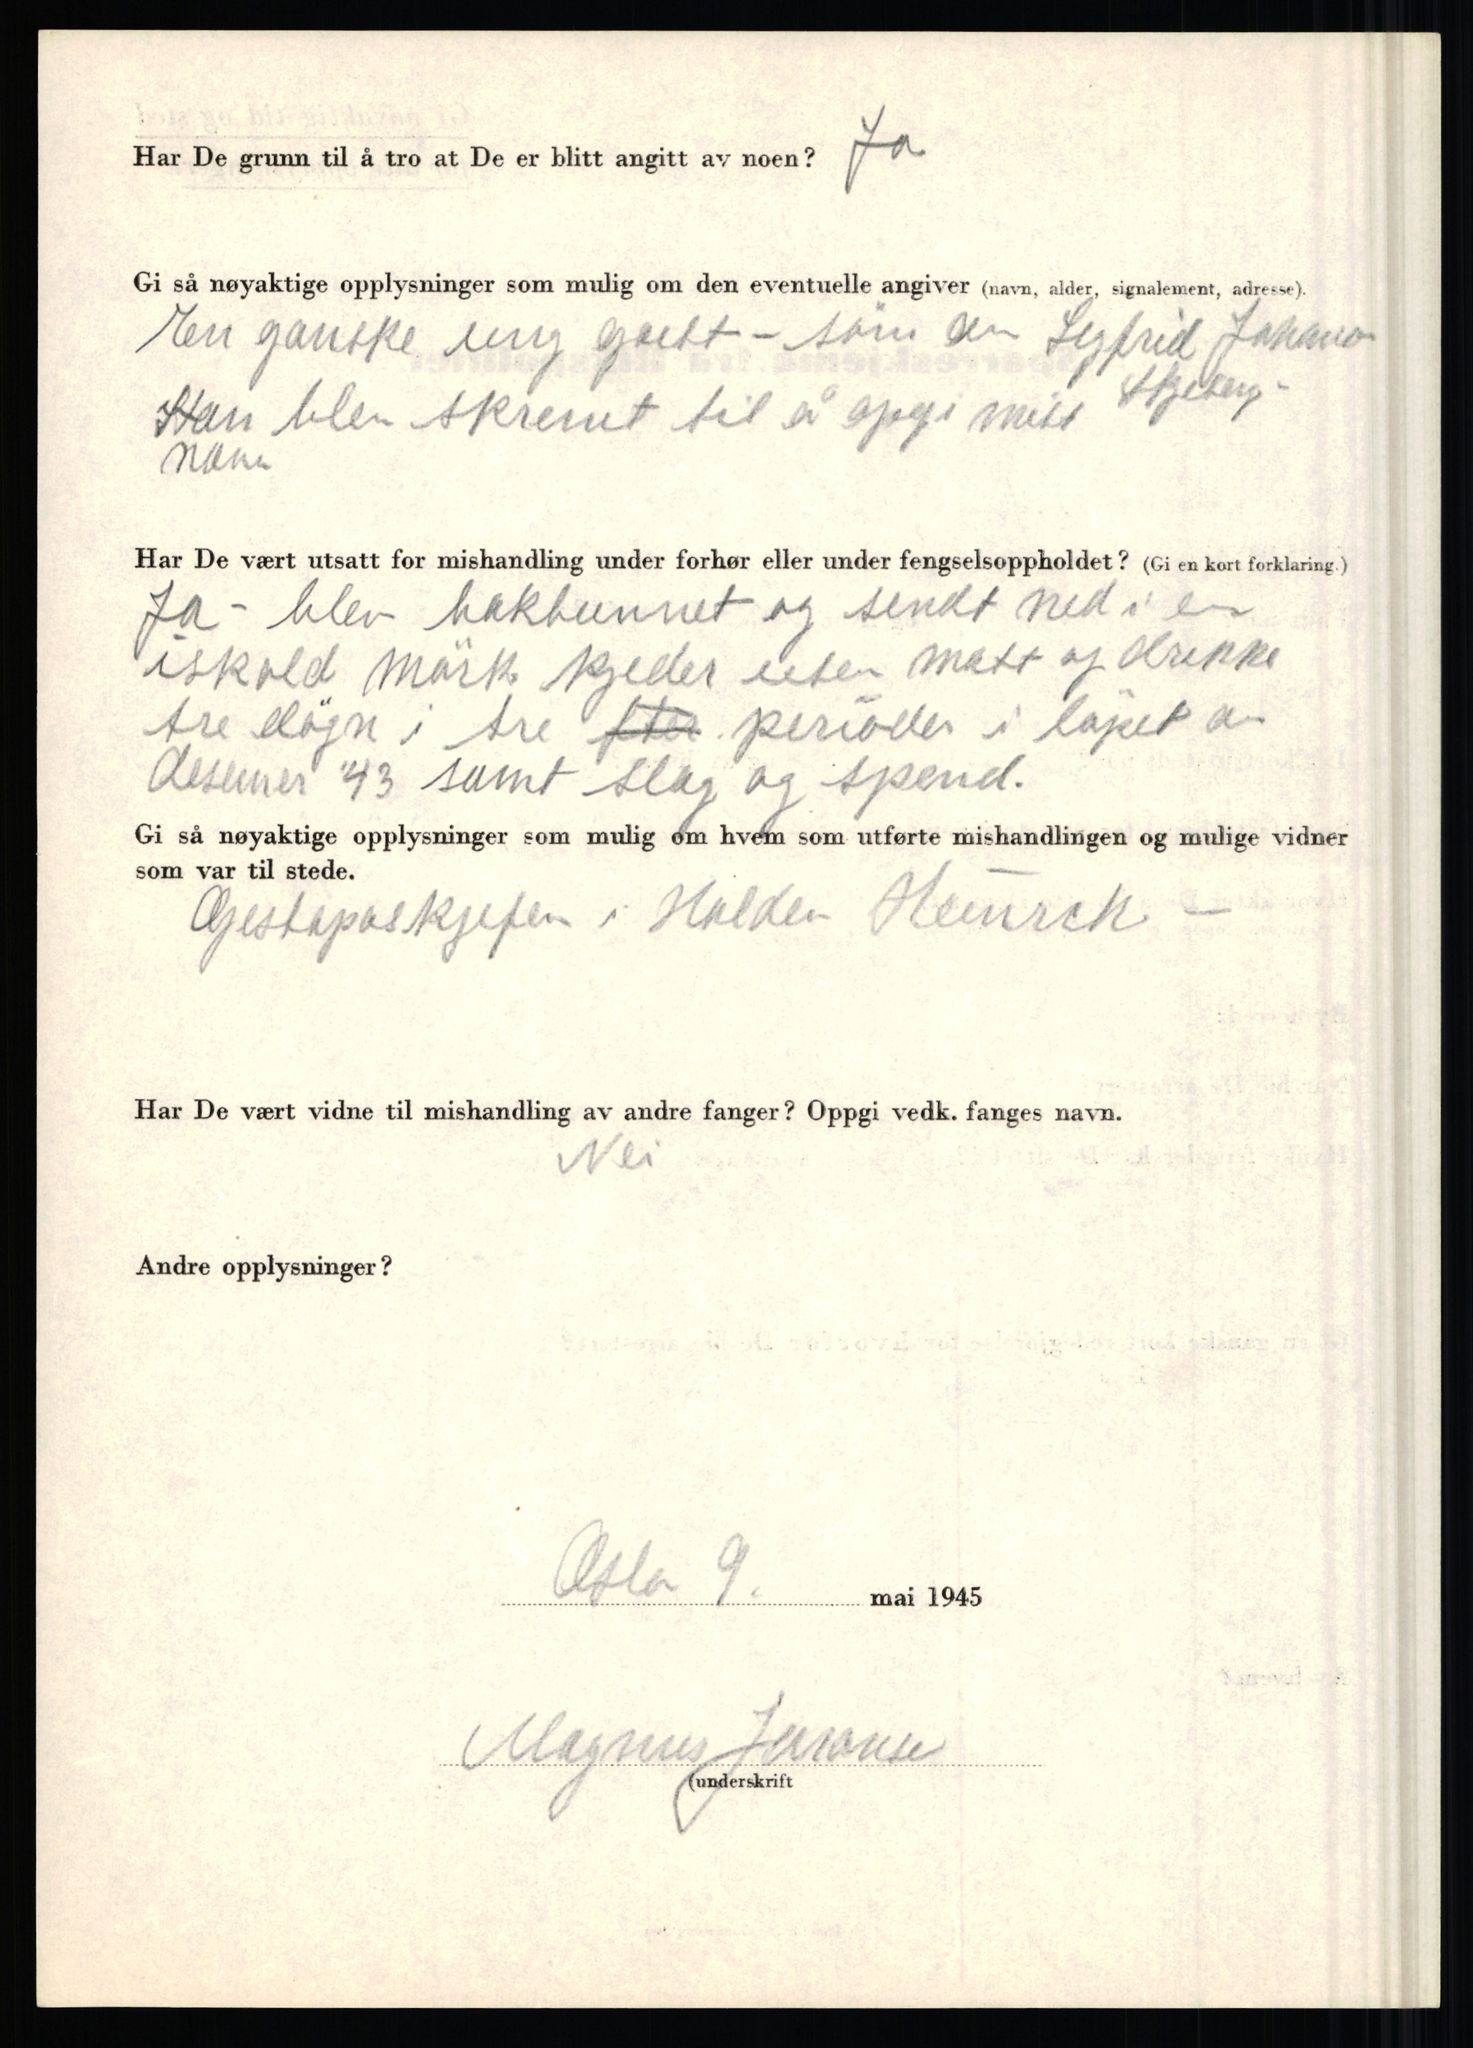 Har De grunn til å tro at De er blitt angitt av noen? Ja
Gi så nøyaktige opplysninger som mulig om den eventuelle angiver (navn, alder, signalement, adresse).
En ganske ung gutt - sönn av Sigfrid Johans
Skjeberg -
Han blev skremt til å opgi mitt
navn
Har De vært utsatt for mishandling under forhør eller under fengselsoppholdet? (Gi en kort forklaring.)
Ja - blev bakbunnet og sendt ned i en
iskold mörk kjeder uten matt og drikke
tre dögn i tre perioder i löpet av
desemer '43 samt slag og spend.
Gi så nøyaktige opplysninger som mulig om hvem som utførte mishandlingen og mulige vidner
som var til stede.
Gestaposkjefen i Halden Heinrch -
Har De vært vidne til mishandling av andre fanger? Oppgi vedk. fanges navn.
Nei
Andre opplysninger?
Oslo 9. mai 1945
Magnus
(underskrift